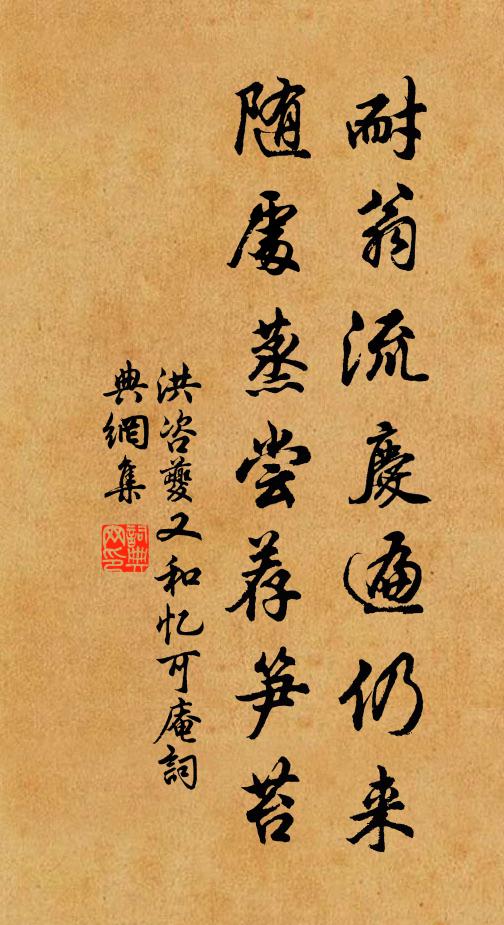 耐翁流慶遍仍来
随處蒸尝荐笋苔
洪咨夔又和忆可庵詞
典網集
詞典网印